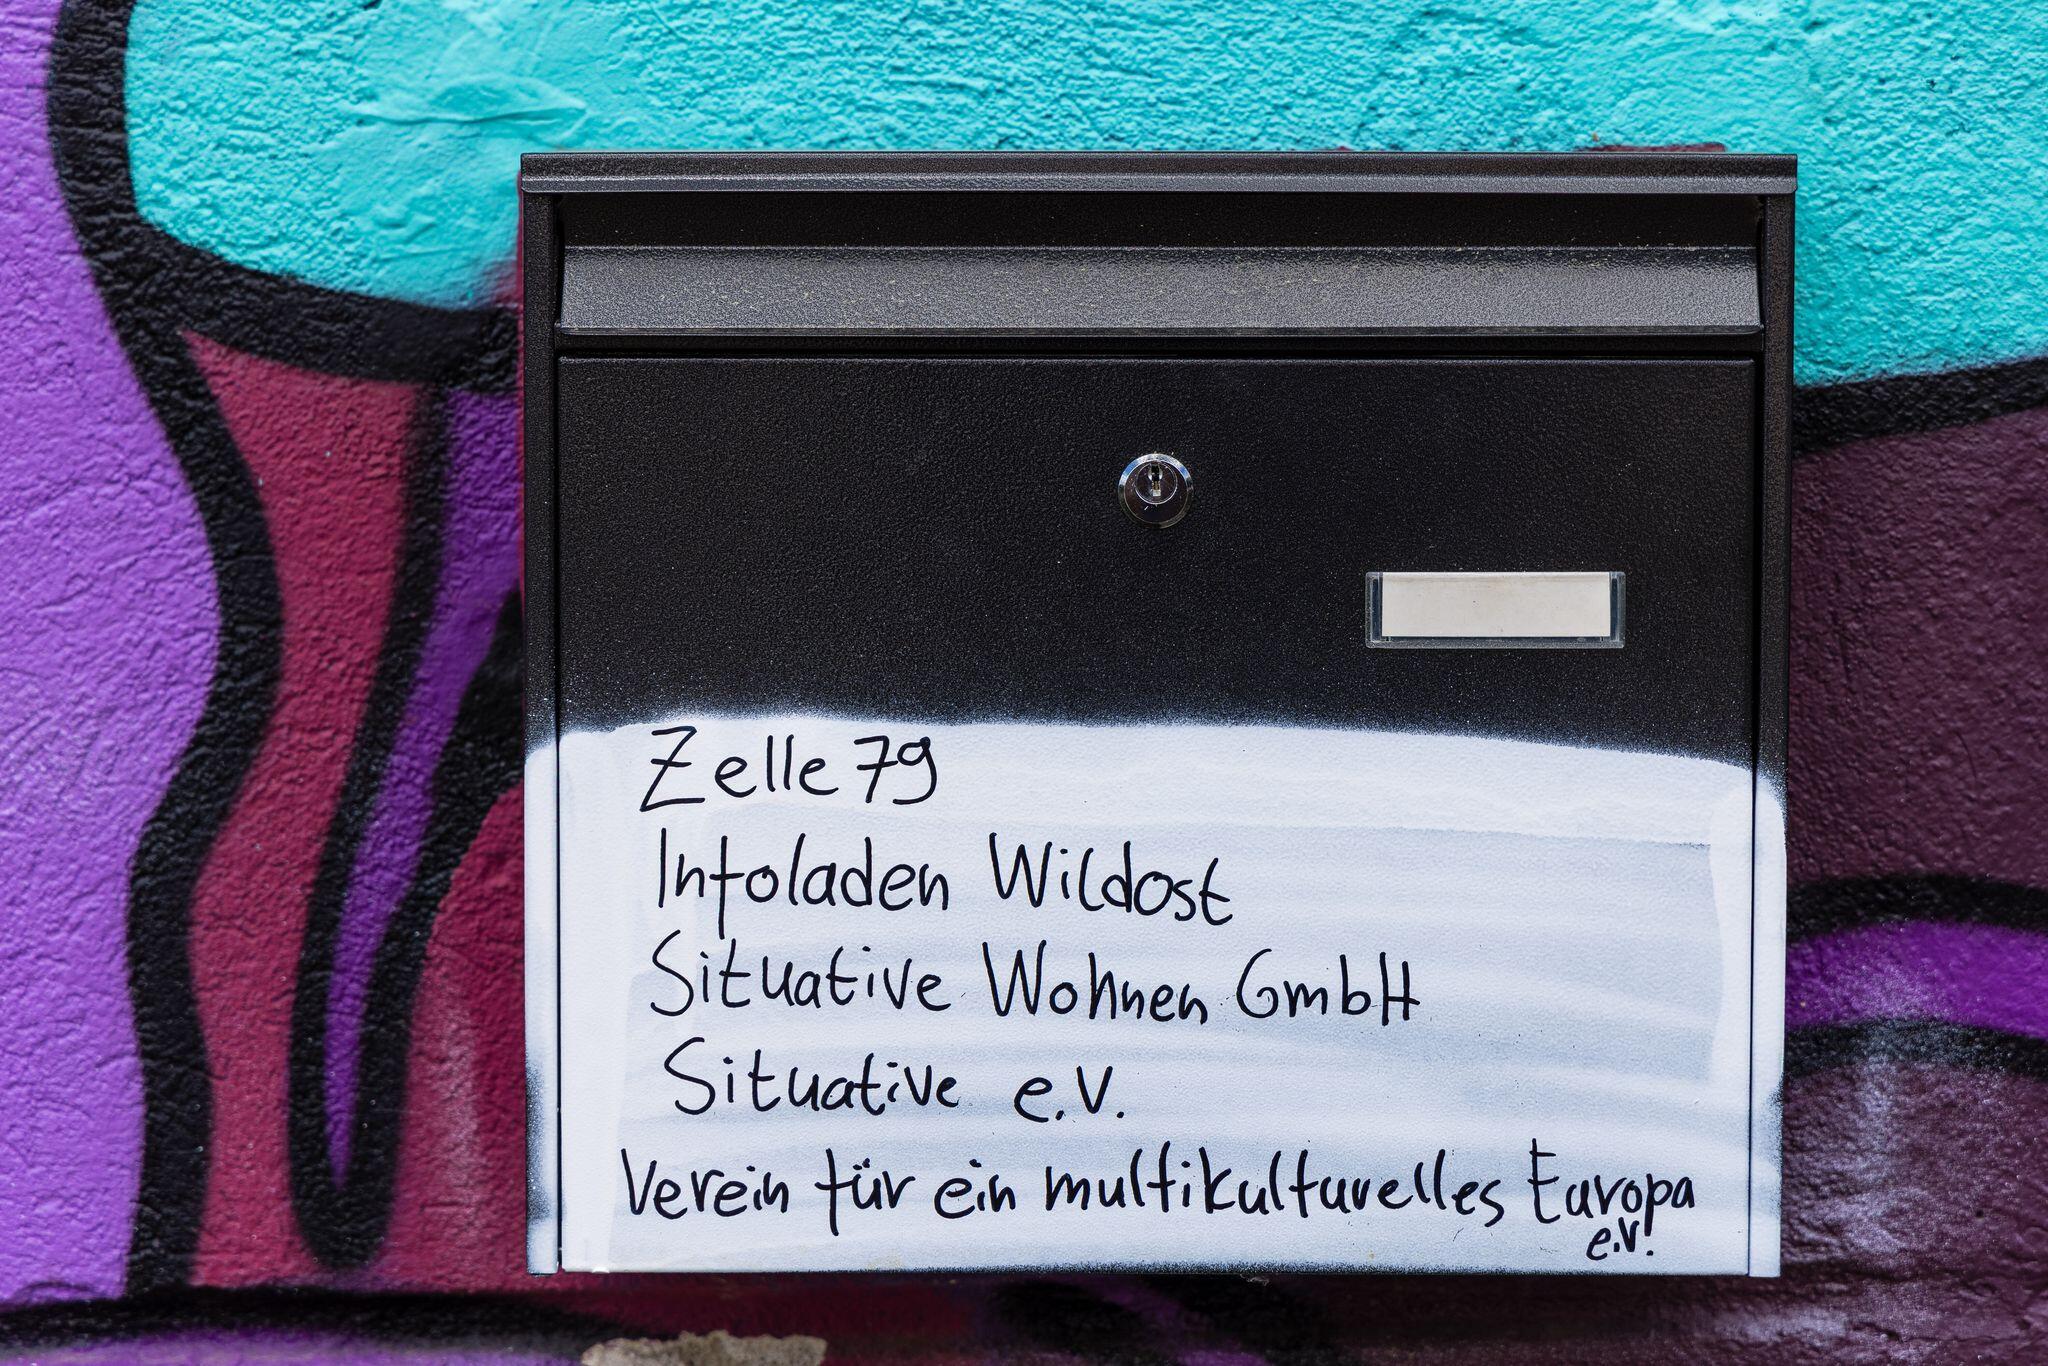 Zelle 79
Infoladen Wildost
Situative Wohnen GmbH
Situative e.V.
Verein für ein multikulturelles Europa
e.V.